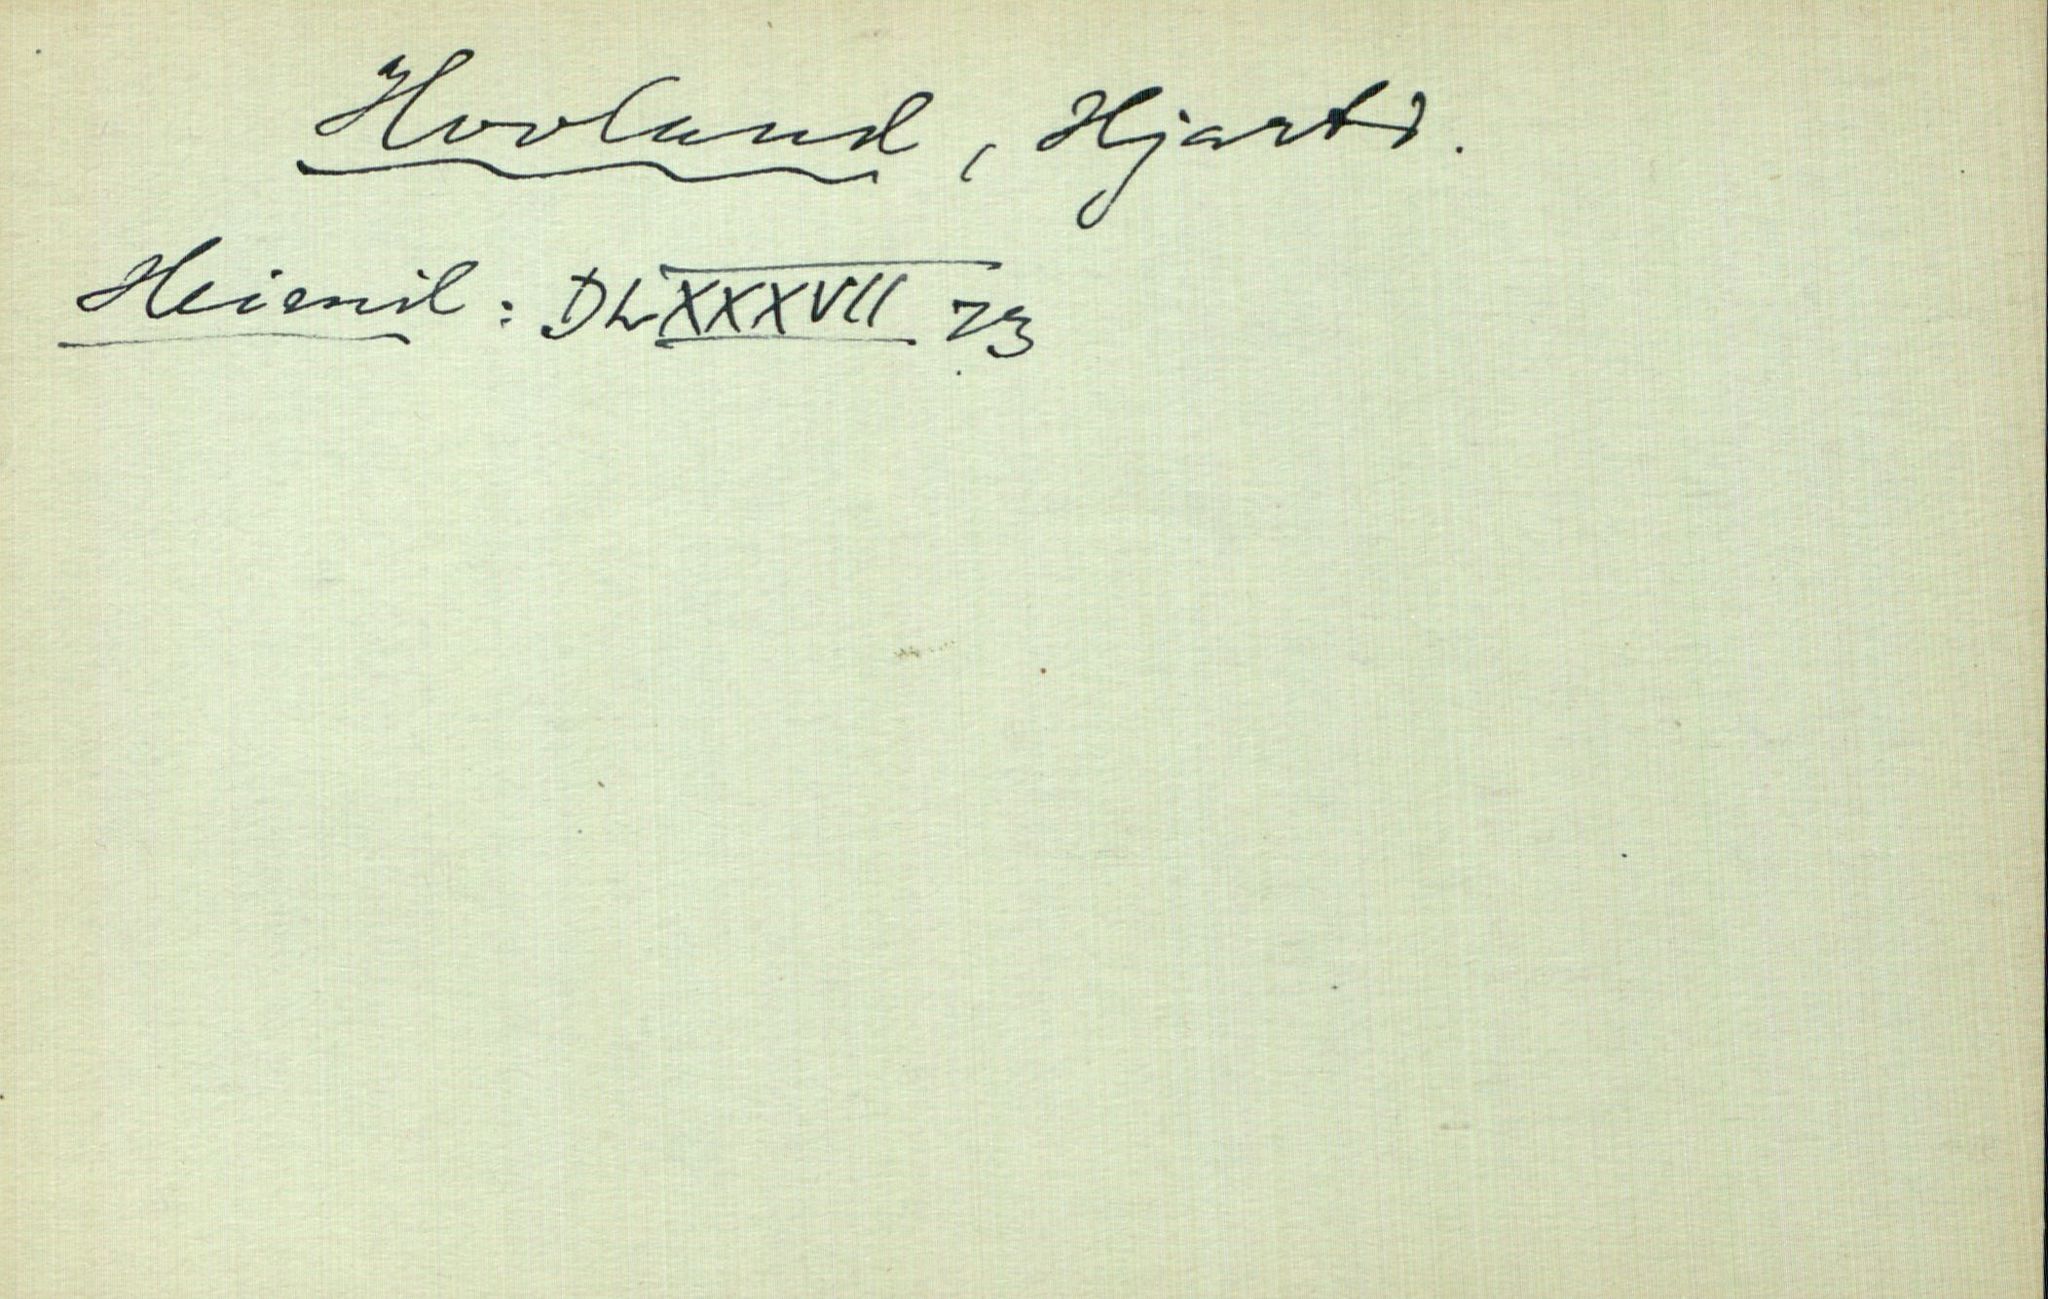 Hovland, Hjartd.
Heimil: DLXXXVII 73